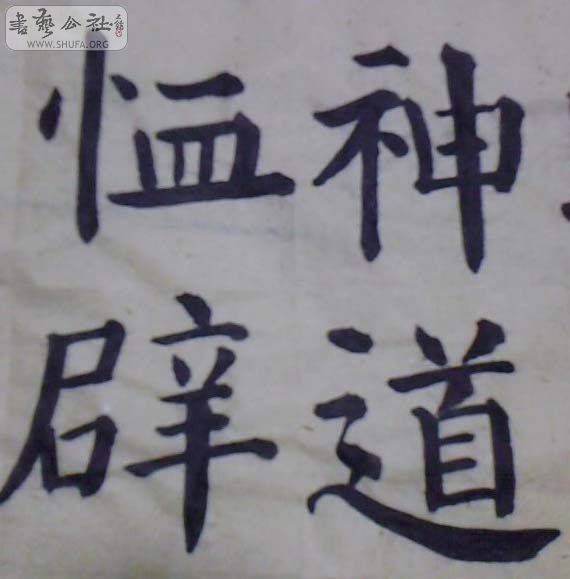 書藝公社
WWW.SHUFA.ORG
神道
恤辟